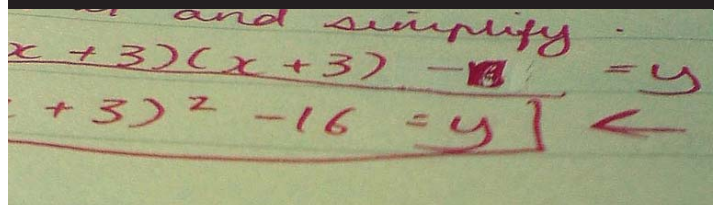 and simplify.
x + 3)(x + 3) - = y
+ 3)² - 16 = y ] ←